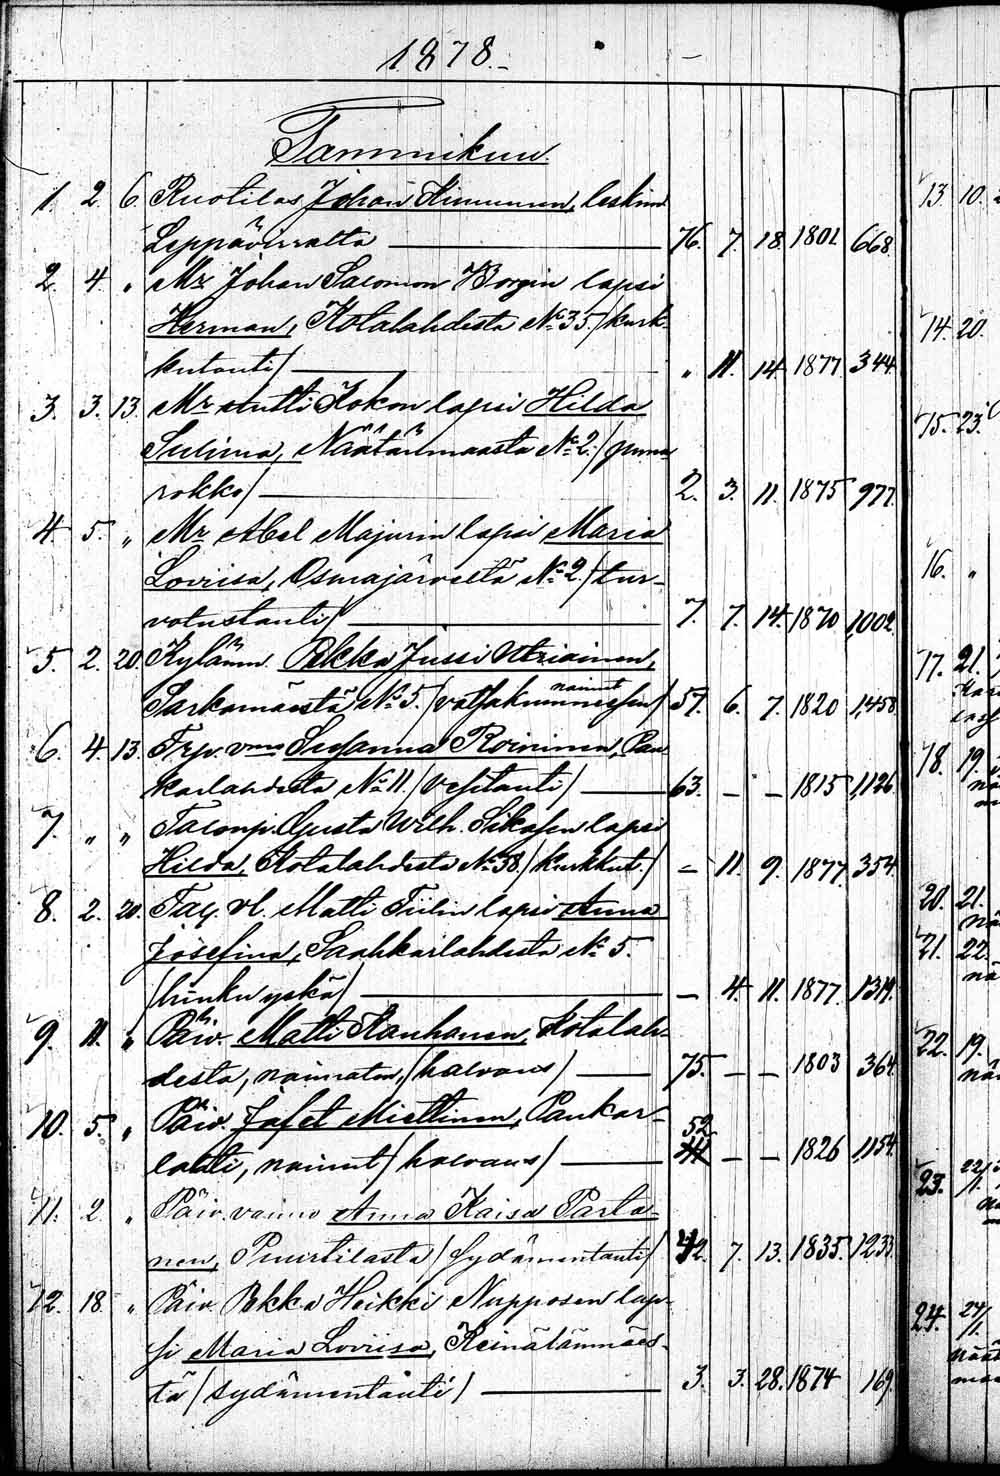 1878.
Tammikuu.
1. 2. 6. Ruotilas Johan Kinnunen, leskim.
Leppävirralta 76. 7. 18. 1801 668.
2. 4. " Mr. Johan Salomon Borgin lapsi
Herman, Kotalahdesta No 35. /kurk-
kutauti/ " 11. 14. 1877. 344.
3. 3. 13. Mr Antti Kokon lapsi Hilda
Sulina, Näätänmaasta No 2. /puna
rokko/ 2. 3. 11. 1875 977.
4. 5. " Mr Abel Majurin lapsi Maria
Loviisa, Osmajärveltä No 2. /tur-
votustauti/ 7. 7. 14. 1870 1,002.
5. 2. 20. Kylänm. Pekka Jussi Utriainen,
nainut
Sarkamäestä No 5. 57. 6. 7. 1820 1,458.
6. 4. 13. Trp. vmo Susanna Roininen, Pau
karlahdesta No 11. /vesitauti/ 63. – – 1815 1,126.
7. " " Gusta Wilh. Sikasen lapsi
Hilda, Kotalahdesta No 38. /kurkkut./ – 11. 9. 1877. 354.
8. 2. 20. Matti Tiilin lapsi Anna
Josefina, Saahkarlahdesta No 5.
/hinku yskä/ – 4. 11. 1877. 1314.
9. 11. " Päiv. Matti Kauhanen, Kotalah-
desta, naimaton, /halvaus/ 75. – – 1803 364.
10. 5. " Päiv. Jafet Miettinen, Paukar-
52
lahti, nainut /halvaus/ – – 1826 1,154.
11. 2. " Päiv. vaimo Anna Kaisa Parta-
nen, Puurtilasta /sydämentauti/ 42. 7. 13. 1835. 1,233.
12. 18. " Päiv. Pekka Heikki Nupposen lap-
si Maria Loviisa, Reinälänmäes-
tä /sydämentauti/ 3. 3. 28. 1874 169.
13. 10.
14. 20.
15. 23.
16. "
17. 21.
18. 19.
20. 21.
21. 22.
nä
22. 19.
23. 22/1.
24. 27/1.